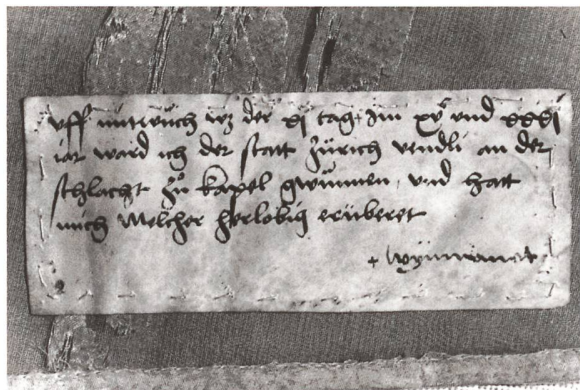 uff mitwuch wz der xj tag im xvᶜ und xxxj
iar ward ich der statt Zürich vendli an der
schlacht Zů kapel gwunnen und hatt
mich Melcher herlobig erüberet